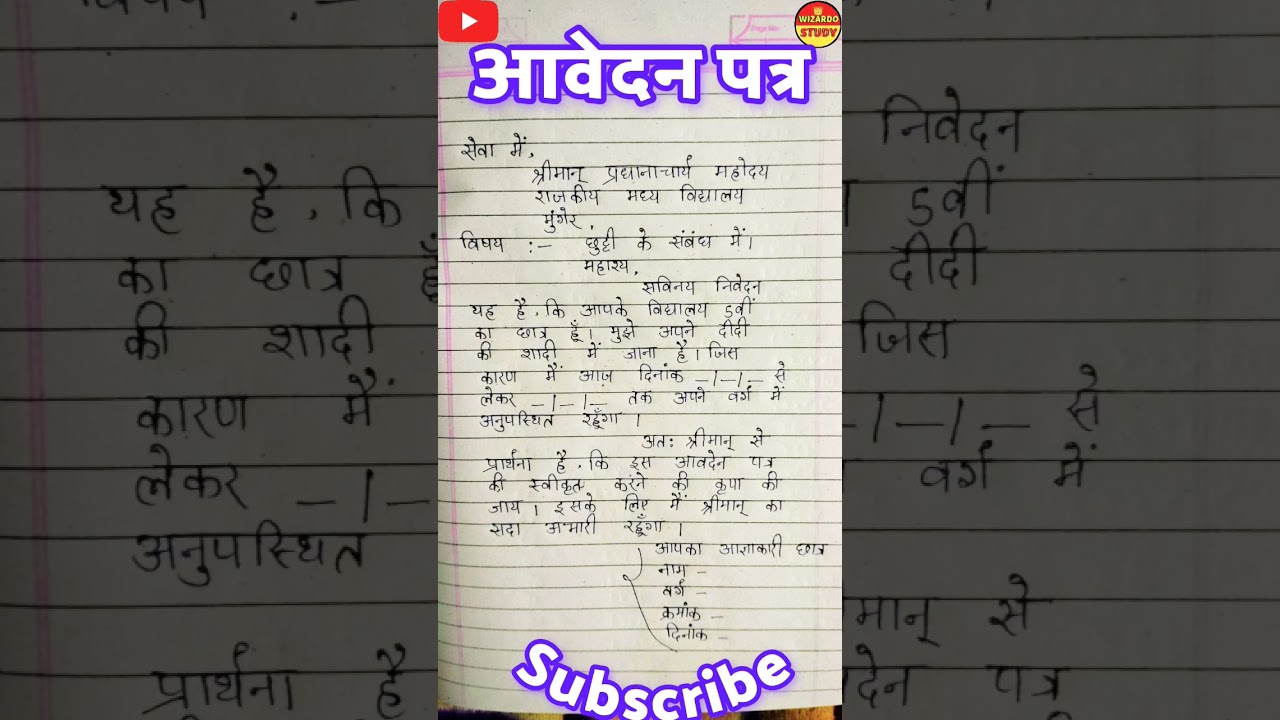 WIZARDO
STUDY
आवेदन पत्र
सेवा में,
श्रीमान् प्रधानाचार्य महोदय
राजकीय मध्य विद्यालय
मुंगेर,
विषय :- छुट्टी के संबंध में।
महाश्य,
सविनय निवेदन
यह है, कि आपके विद्यालय 5वीं
का छात्र हूँ। मुझे अपने दीदी
की शादी में जाना है। जिस
कारण मैं आज दिनांक _/_/_ से
लेकर _/_/_ तक अपने वर्ग में
अनुपस्थित रहूँगा ।
अतः श्रीमान् से
प्रार्थना है, कि इस आवदेन पत्र
की स्वीकृत करने की कृपा की
जाय । इसके लिए मैं श्रीमान् का
सदा अभारी रहूँगा ।
आपका आज्ञाकारी छात्र
नाम -
वर्ग -
क्रमांक -
दिनांक -
Subscribe